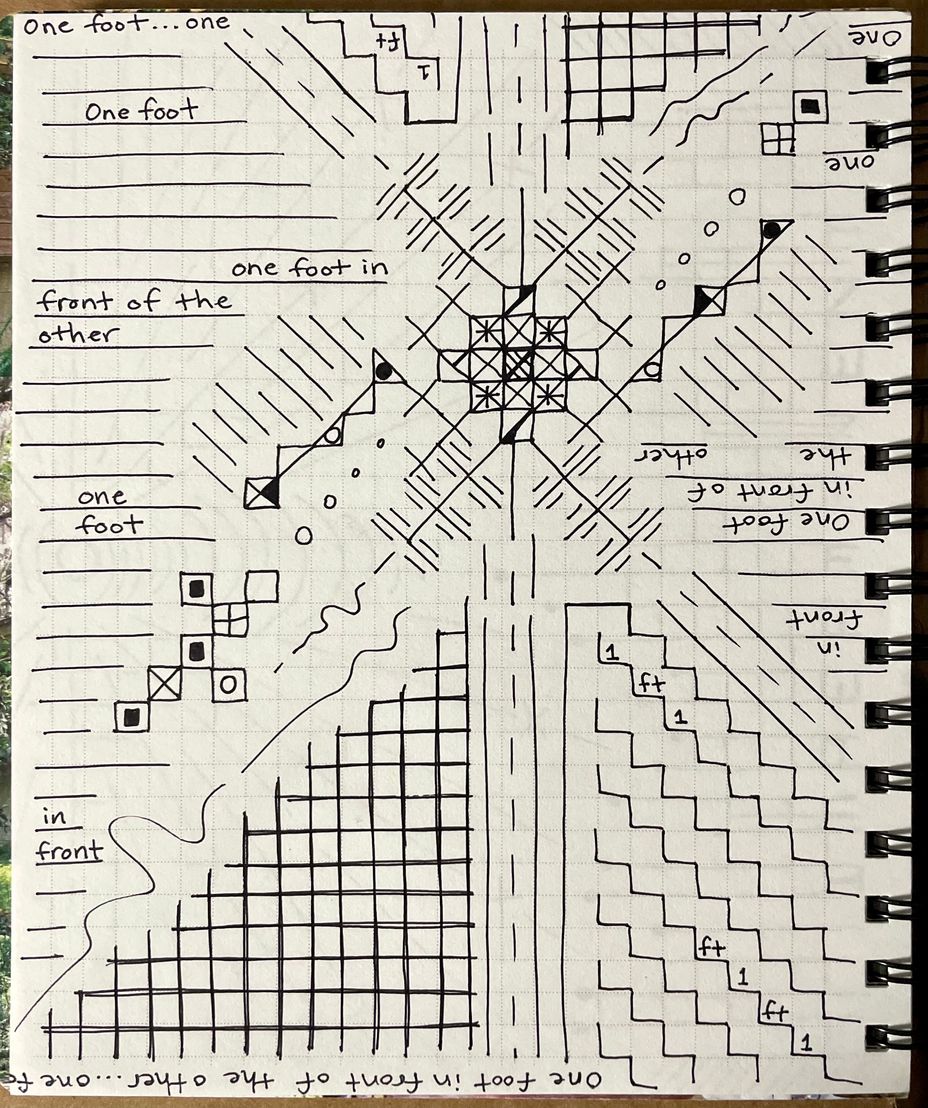 One foot...one
One foot
one foot in
front of the
other
one
foot
in
front
ft
1
One
one
the
other
in front of
One foot
front
in
1
ft
1
ft
1
ft
1
One foot in front of the other...one fo